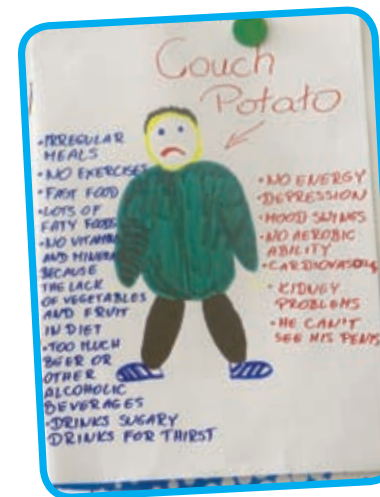 Couch
Potato
•IRREGULAR
MEALS
•NO EXERCISES
•FAST FOOD
•LOTS OF
FATY FOODS
•NO VITAMINS
AND MINERALS
BECAUSE
THE LACK
OF VEGETABLES
AND FRUIT
IN DIET
•TOO MUCH
BEER OR
OTHER
ALCOHOLIC
BEVERAGES
•DRINKS SUGARY
DRINKS FOR THIRST
•NO ENERGY
•DEPRESSION
•MOOD SWINGS
•NO AEROBIC
ABILITY
•KIDNEY
PROBLEMS
•HE CAN'T
SEE HIS PENIS